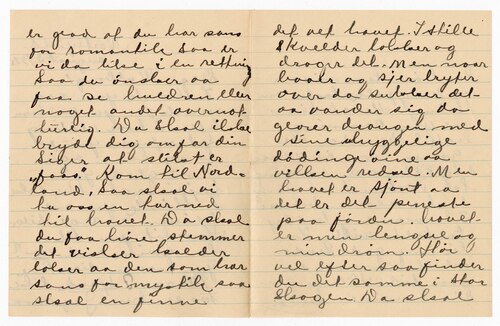 er glad at du har sans
for romantik saa er
vi da like i en retning
Saa du ønsker aa
faa se huldren eller
noget andet overnat
turlig. Du skal ikke
bryde dig om far din
siger at slikt er
Kom til Nord-
land, saa skal vi
ta oss en tur ned
til havet. Da skal
du faa høre stemmer
det visker kalder
lokker aa den som har
sans for mystik saa
skal en finne
det ved havet. I stille
kvelder lokker og
drager det. Men naar
baare og sjør bryter
over da sukker det
aa vander sig da
gaorer draugen med
sine uhyggelige
øine aa
vilsen redsel. Men
havet er sjønt aa
det er det peneste
paa jorden. Havet
er min lengsel og
min drøm. Hør
vel efter saa finder
du det samme i stor
skogen. Da skal